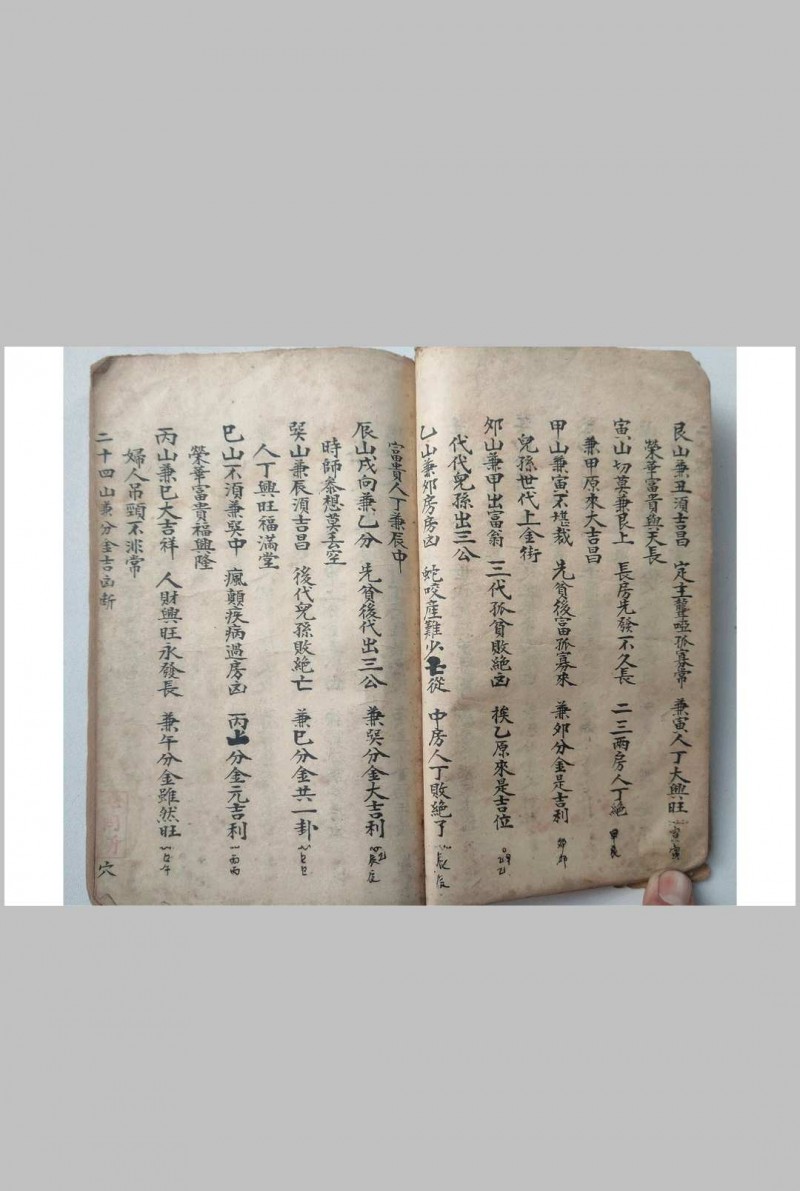 艮山兼丑湏吉昌 定主聾啞孤寡常 兼寅人丁大興旺
榮華富貴與天長
寅山切莫兼艮上 長房先發不久長 二三兩房人丁絕 甲艮
兼甲原來大吉昌
甲山兼寅不堪裁 先貧後富孤寡來 兼夘分金是吉利
兒孫世代上金街
夘山兼甲出富翁 三代孤貧敗絕凶 挨乙原來是吉位
代代兒孫出三公
乙山兼夘房房凶 蛇咬産難少亡從 中房人丁敗絕了
富貴人丁兼辰中
辰山戌向兼乙分 先貧後代出三公 兼巽分金大吉利
時師叅想莫丢空
巽山兼辰湏吉昌 後代兒孫敗絕亡 兼巳分金共一卦
人丁興旺福滿堂
巳山不湏兼巽中 瘋顛疾病過房凶 丙上分金元吉利
榮華富貴福興隆
丙山兼巳大吉祥 人財興旺永發長 兼午分金雖然旺
婦人吊頸不非常
二十四山兼分金吉凶斷 穴